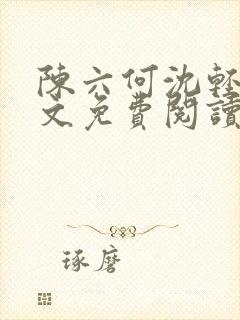 陳六何沈輕
文免費閱讀
琢磨